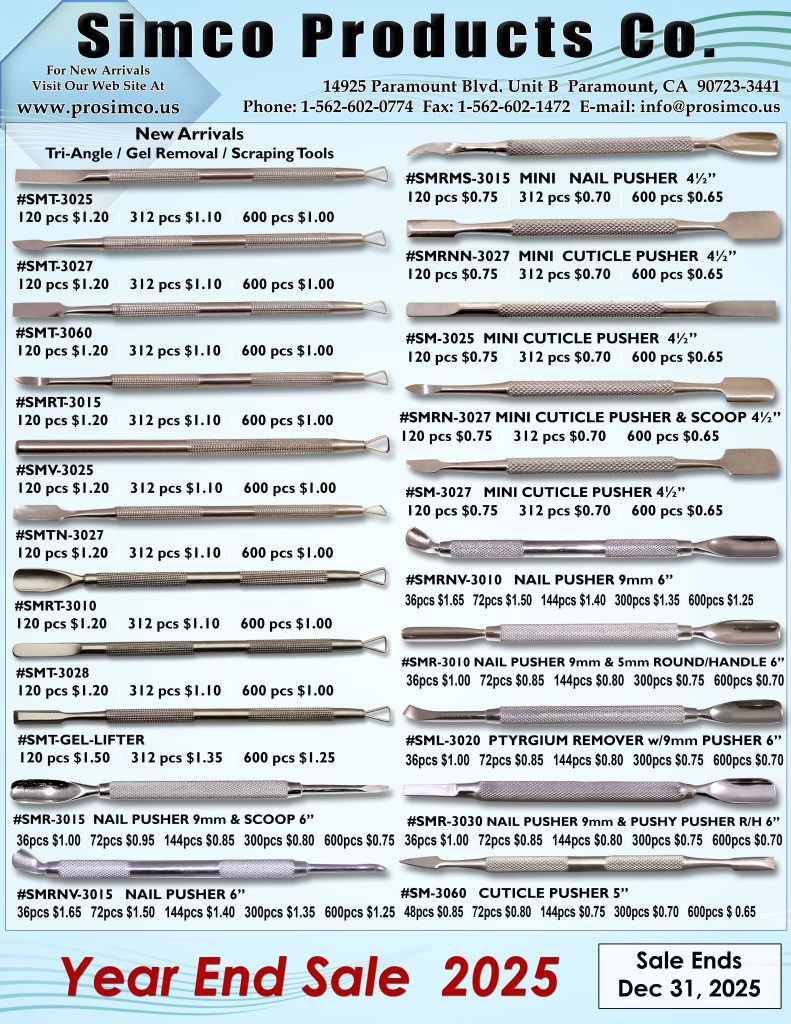 Simco Products Co.
For New Arrivals
Visit Our Web Site At
www.prosimco.us
14925 Paramount Blvd. Unit B Paramount, CA 90723-3441
Phone: 1-562-602-0774 Fax: 1-562-602-1472 E-mail: info@prosimco.us
New Arrivals
Tri-Angle / Gel Removal / Scraping Tools
#SMT-3025
120 pcs $1.20 312 pcs $1.10 600 pcs $1.00
#SMT-3027
120 pcs $1.20 312 pcs $1.10 600 pcs $1.00
#SMT-3060
120 pcs $1.20 312 pcs $1.10 600 pcs $1.00
#SMRT-3015
120 pcs $1.20 312 pcs $1.10 600 pcs $1.00
#SMV-3025
120 pcs $1.20 312 pcs $1.10 600 pcs $1.00
#SMTN-3027
120 pcs $1.20 312 pcs $1.10 600 pcs $1.00
#SMRT-3010
120 pcs $1.20 312 pcs $1.10 600 pcs $1.00
#SMT-3028
120 pcs $1.20 312 pcs $1.10 600 pcs $1.00
#SMT-GEL-LIFTER
120 pcs $1.50 312 pcs $1.35 600 pcs $1.25
#SMR-3015 NAIL PUSHER 9mm & SCOOP 6”
36pcs $1.00 72pcs $0.95 144pcs $0.85 300pcs $0.80 600pcs $0.75
#SMRNV-3015 NAIL PUSHER 6”
36pcs $1.65 72pcs $1.50 144pcs $1.40 300pcs $1.35 600pcs $1.25
#SMRMS-3015 MINI NAIL PUSHER 4½”
120 pcs $0.75 312 pcs $0.70 600 pcs $0.65
#SMRNN-3027 MINI CUTICLE PUSHER 4½”
120 pcs $0.75 312 pcs $0.70 600 pcs $0.65
#SM-3025 MINI CUTICLE PUSHER 4½”
120 pcs $0.75 312 pcs $0.70 600 pcs $0.65
#SMRN-3027 MINI CUTICLE PUSHER & SCOOP 4½”
120 pcs $0.75 312 pcs $0.70 600 pcs $0.65
#SM-3027 MINI CUTICLE PUSHER 4½”
120 pcs $0.75 312 pcs $0.70 600 pcs $0.65
#SMRNV-3010 NAIL PUSHER 9mm 6”
36pcs $1.65 72pcs $1.50 144pcs $1.40 300pcs $1.35 600pcs $1.25
#SMR-3010 NAIL PUSHER 9mm & 5mm ROUND/HANDLE 6”
36pcs $1.00 72pcs $0.85 144pcs $0.80 300pcs $0.75 600pcs $0.70
#SML-3020 PTYRGIUM REMOVER w/9mm PUSHER 6”
36pcs $1.00 72pcs $0.85 144pcs $0.80 300pcs $0.75 600pcs $0.70
#SMR-3030 NAIL PUSHER 9mm & PUSHY PUSHER R/H 6”
36pcs $1.00 72pcs $0.85 144pcs $0.80 300pcs $0.75 600pcs $0.70
#SM-3060 CUTICLE PUSHER 5”
48pcs $0.85 72pcs $0.80 144pcs $0.75 300pcs $0.70 600pcs $ 0.65
Year End Sale 2025
Sale Ends
Dec 31, 2025